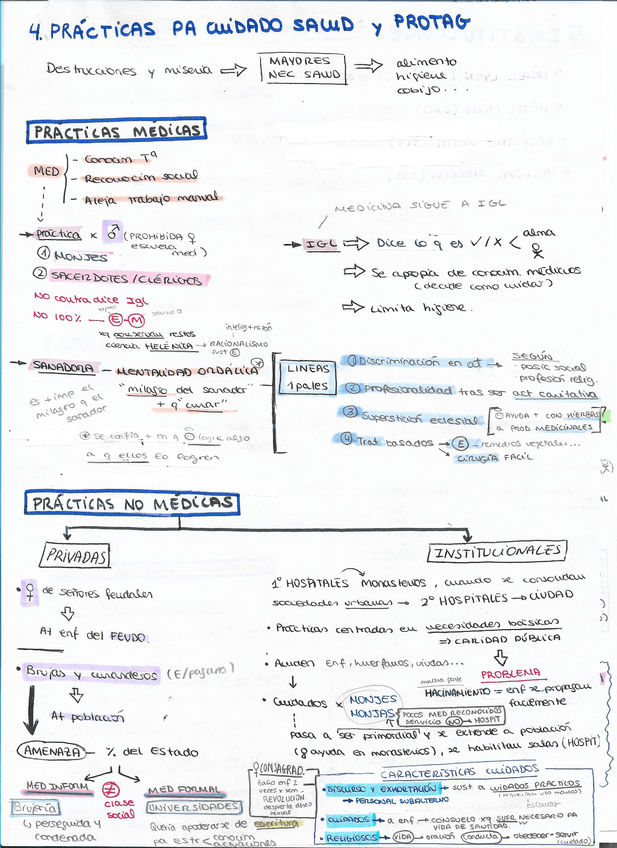 4. PRÁCTICAS PA CUIDADO SALUD y PROTAG
Destrucciones y miseria ⇒ MAYORES NEC SALUD ⇒ alimento
higiene
cobijo...
PRÁCTICAS MÉDICAS
MED
- Conocim Tª
- Reconocim social
- Aleja trabajo manual
MEDICINA SIGUE A IGL
→ práctica x ♂ (PROHIBIDA ♀ escuela med)
① MONJES
② SACERDOTES/CLÉRIGOS
NO contradice Igl
NO 100% — E-M
xq conservan restos
ciencia HELÉNICA → RACIONALISMO
intelig+razón
→ IGL ⇒ Dice lo q es ✓/X < alma
⇒ Se apropia de conocim médicos
(decide como cuidar)
⇒ Limita higiene.
→ SANADORA - MENTALIDAD ORDÁLICA
"milagro del sanador"
+ q "curar"
es + imp el
milagro q el
sanador
se confía + en q
a q ellos lo logren
LINEAS 1pales
① Discriminación en at → SEGÚN
· posic social
· profesión relig.
② Profesionalidad tras ser act caritativa
③ Superstición eclesial
AYUDA + CON HIERBAS
a PROD MEDICINALES
④ Trat basados → E - remedios vegetales...
CIRUGÍA FACIL
PRÁCTICAS NO MÉDICAS
PRIVADAS
• ♀ de señores feudales
⇓
At enf del FEUDO.
• Brujas y curanderos (E/pagano)
⇓
At población
AMENAZA - % del Estado
MED INFORM ≠ MED FORMAL
clase social
Brujería
UNIVERSIDADES
↳ perseguida y
condenada
Quería apoderarse de escritura
INSTITUCIONALES
1º HOSPITALES monasterios, cuando se consolidan
sociedades urbanas → 2º HOSPITALES → CIUDAD
• Prácticas centradas en necesidades básicas
⇒ CARIDAD PÚBLICA
• Acuden enf, huerfanos, viudas...
PROBLEMA
HACINAMIENTO = enf se propagan
facilmente
• Cuidados x MONJES
MONJAS
POCOS MED RECONOCIDOS
servicio NO → HOSPIT
pasa a ser primordial y se extende a población
(ayuda en monasterios), se habilitan salas (HOSPIT)
♀ CONSAGRAD.
REVOLUCIÓN
CARACTERÍSTICAS CUIDADOS
• DISCURSO Y EXHORTACIÓN → sust a CUIDADOS PRÁCTICOS
→ PERSONAL SUBALTERNO
esclavas
• CUIDADOS → a enf → CONSUELO xq SUFR NECESARIO PA
VIDA DE SANTIDAD.
• RELIGIOSOS → VIDA → oración CONDUCTA → obedecer-servir
(cuidado)